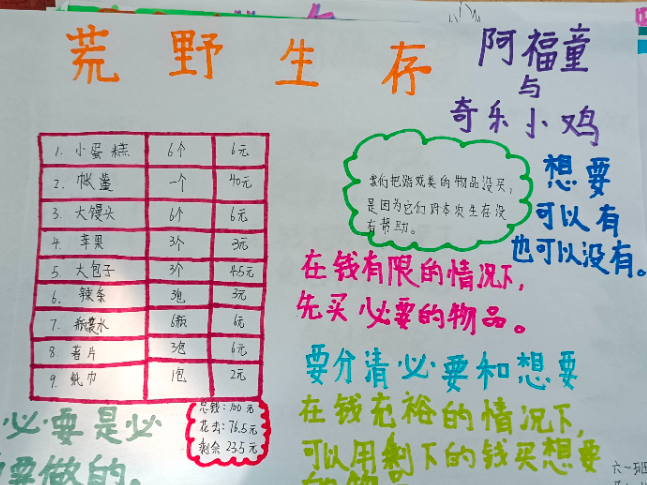 荒野生存
阿福童
与
奇乐小鸡
1. 小蛋糕 6个 6元
2. 帐蓬 一个 40元
3. 大馒头 6个 6元
4. 苹果 3个 3元
5. 大包子 3个 4.5元
6. 辣条 3包 3元
7. 瓶装水 6瓶 6元
8. 薯片 3包 6元
9. 纸巾 1包 2元
总钱:100元
花去:76.5元
剩余 23.5元
我们把游戏类的物品没买,
是因为它们对本次生存没
有帮助。
想要
可以有
也可以没有。
在钱有限的情况下,
先买必要的物品。
要分清必要和想要
必要是必
要做的。
在钱充裕的情况下,
可以用剩下的钱买想要
六一班